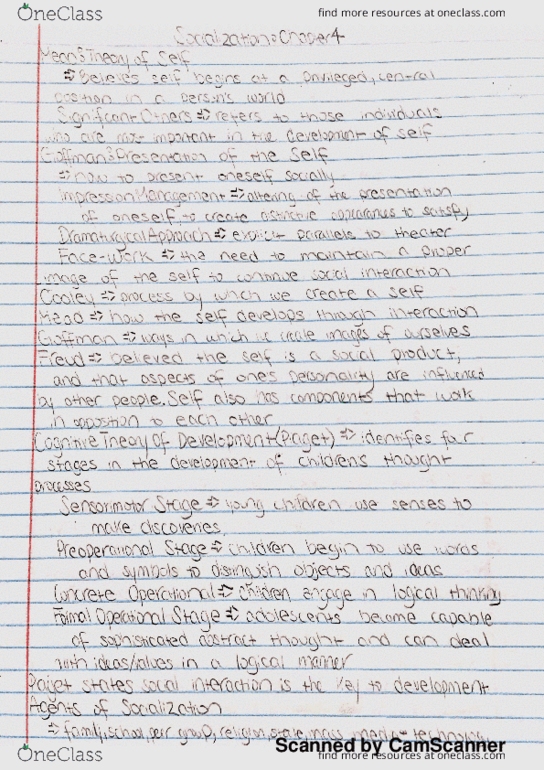 OneClass
find more resources at oneclass.com
Socialization: Chapter 4
Mead: Theory of Self
⇒ Believes self begins at a privileged, central
position in a person's world
Significant Others ⇒ refers to those individuals
who are most important in the development of self
Goffman: Presentation of the Self
⇒ how to present oneself socially
Impression Management ⇒ altering of the presentation
of oneself to create distinctive appearances to satisfy
Dramaturgical Approach ⇒ explicit parallels to theater
Face-Work ⇒ the need to maintain a proper
image of the self to continue social interaction
Cooley ⇒ process by which we create a self
Mead ⇒ how the self develops through interaction
Goffman ⇒ ways in which we create images of ourselves
Freud ⇒ believed the self is a social product,
and that aspects of one's personality are influenced
by other people. Self also has components that work
in opposition to each other
Cognitive Theory of Development (Piaget) ⇒ identifies four
stages in the development of childrens thought
processes
Sensorimotor Stage ⇒ young children use senses to
make discoveries
Preoperational Stage ⇒ children begin to use words
and symbols to distinguish objects and ideas
Concrete Operational ⇒ children engage in logical thinking
Formal Operational Stage ⇒ adolescents become capable
of sophisticated abstract thought and can deal
with ideas/values in a logical manner
Piaget states social interaction is the key to development
Agents of Socialization
⇒ family, school, peer group, religion, state, mass media + technology
Scanned by CamScanner
OneClass
find more resources at oneclass.com